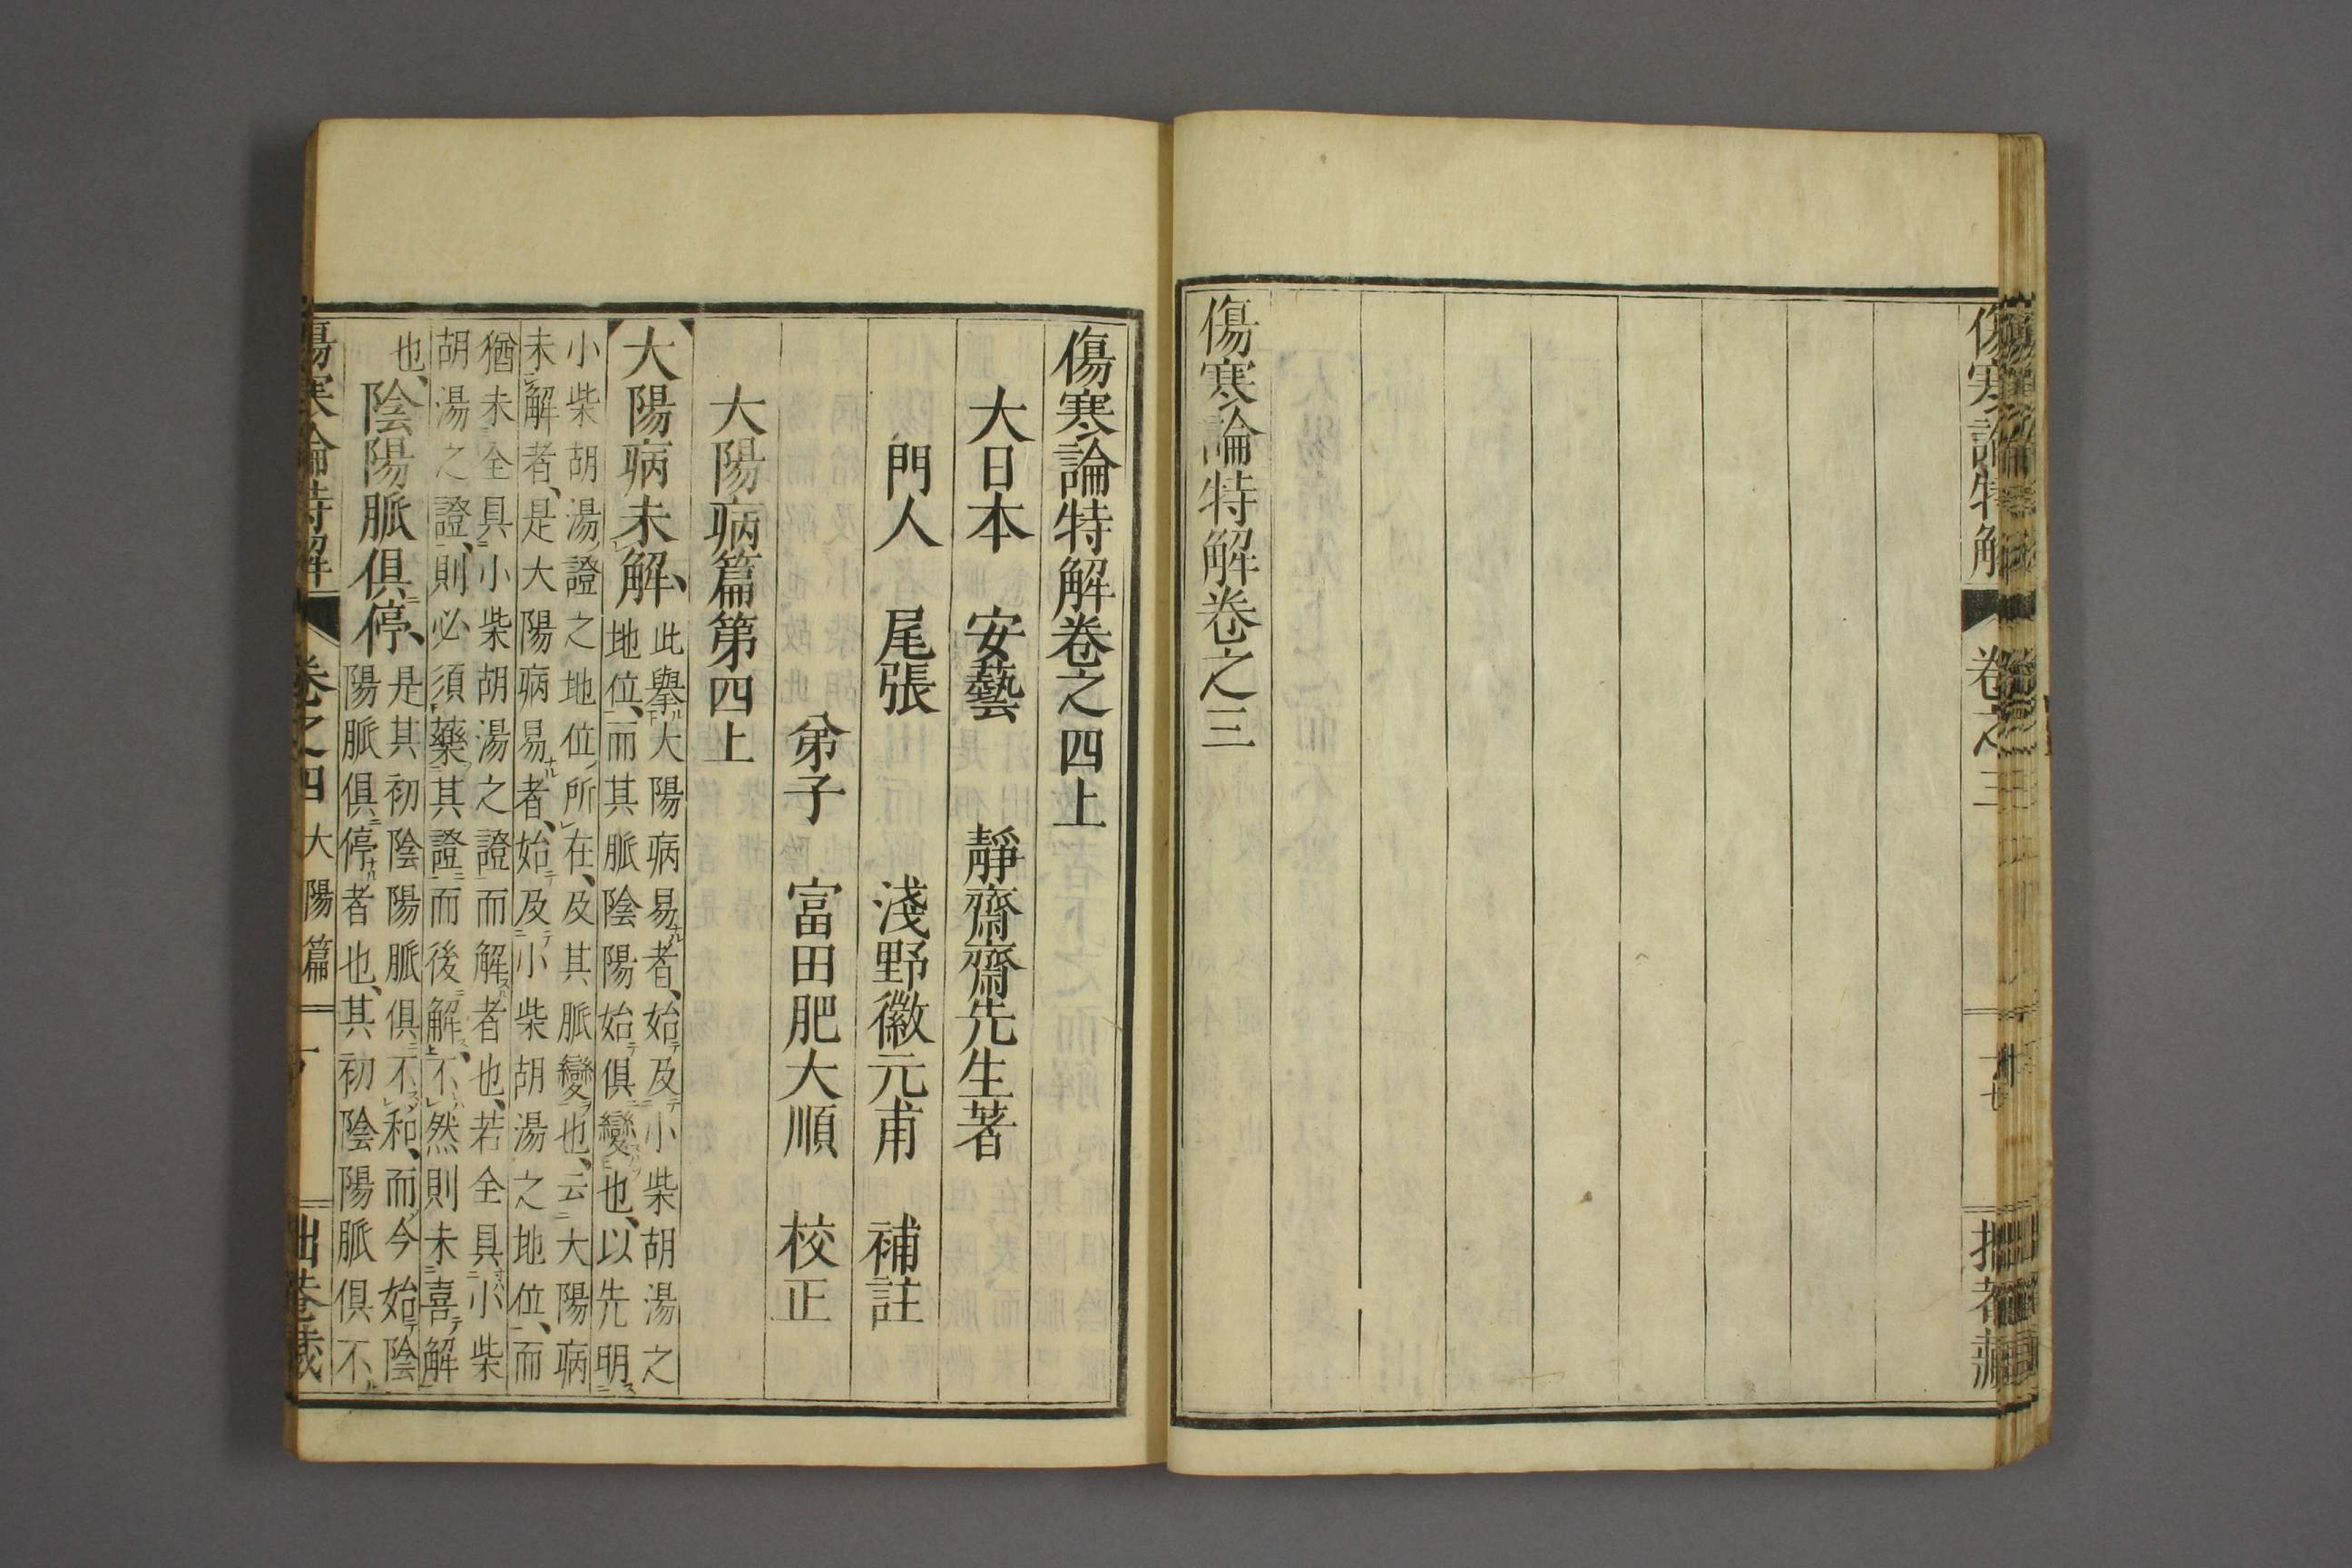 傷寒論特解
卷之三
傷寒論特解卷之三
傷寒論特解卷之四上
大日本 安藝 靜齋齋先生著
門人 尾張 淺野徽元甫 補註
弟子 富田肥大順 校正
大陽病篇第四上
大陽病未解、
此擧大陽病易者、始及小柴胡湯之
地位、而其脈陰陽始俱變也、以先明
小柴胡湯證之地位所在、及其脈變也、云大陽病
未解者、是大陽病易者、始及小柴胡湯之地位、而
猶未全具小柴胡湯之證而解者也、若全具小柴
胡湯之證、則必須藥其證而後解、不然則未喜解
也、
陰陽脈俱停、
是其初陰陽脈俱不和、而今始陰
陽脈俱停者也、其初陰陽脈俱不
傷寒論特解 卷之四 大陽篇 一